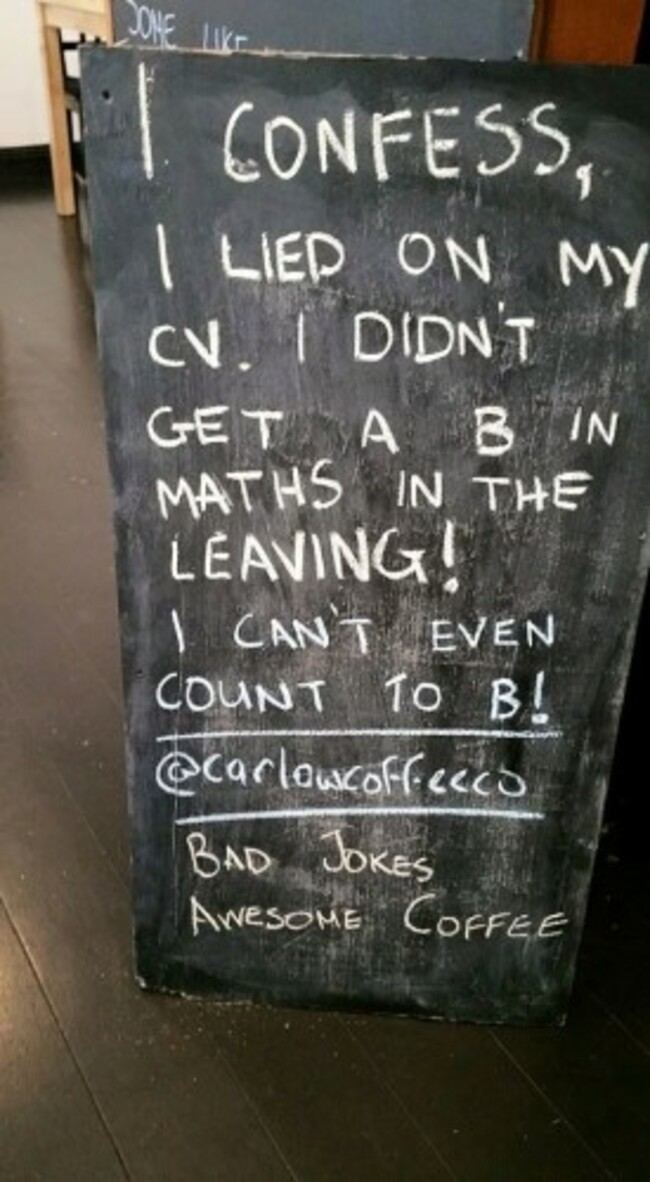 SOME LIKE
I CONFESS,
I LIED ON MY
CV. I DIDN'T
GET A B IN
MATHS IN THE
LEAVING!
I CAN'T EVEN
COUNT TO B!
@carlowcoffeeco
BAD JOKES
AWESOME COFFEE